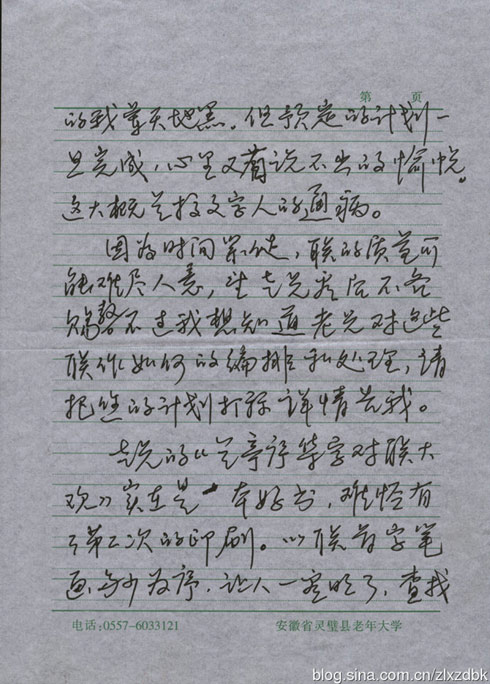 第 页
的我昏天地黑。但预定的计划一
旦完成,心里又有说不出的愉悦。
这大概是搞文字人的通病。
因为时间紧促,联的质量可
能难尽人意,望老兄看后不吝
赐教。不过我想知道老兄对这些
联作如何的编排和处理,请
把您的计划打算详情告我。
老兄的《兰亭序集字对联大
观》实在是一本好书,难怪有
了第二次的印刷。以联首字笔
画多少为序,让人一空明了,查找
电话:0557-6033121 安徽省灵璧县老年大学
blog.sina.com.cn/zlxzdbk